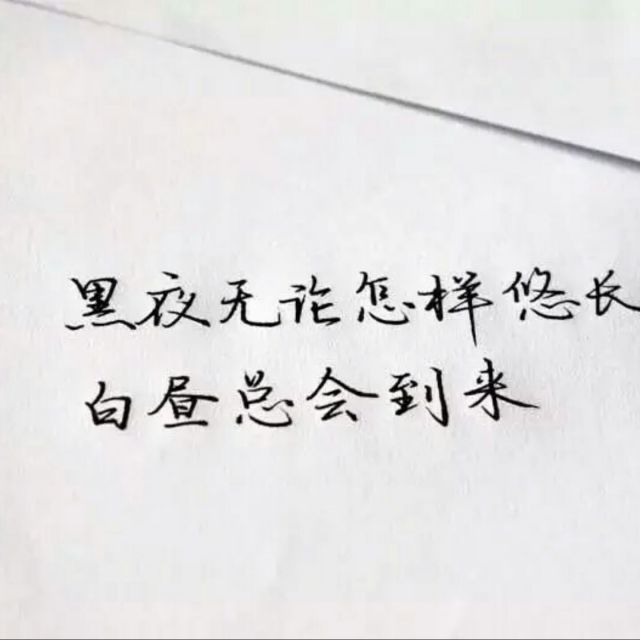 黑夜无论怎样悠长
白昼总会到来